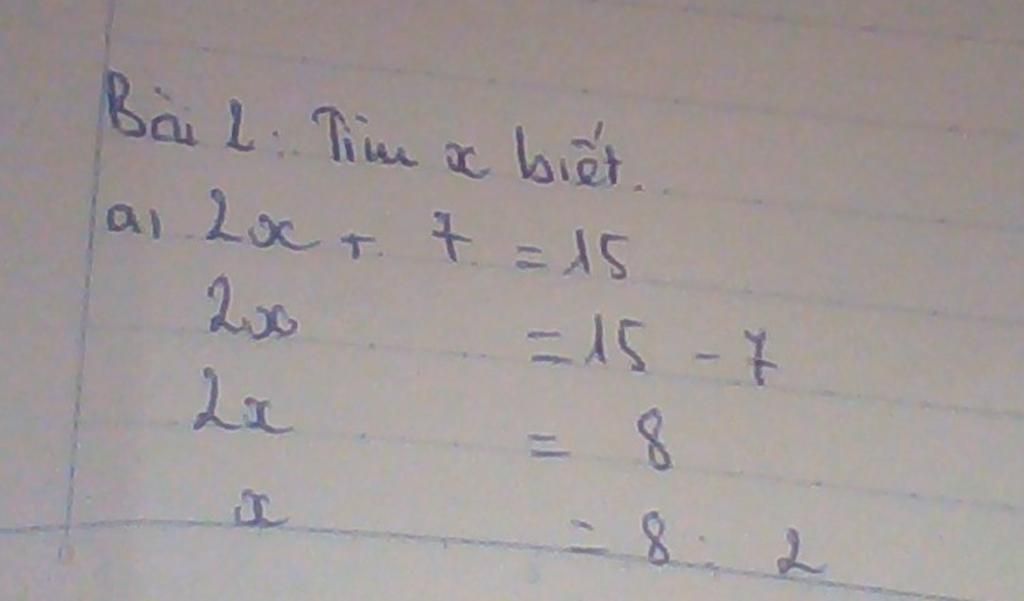 Bài 1: Tìm x biết.
a, 2x + 7 = 15
2x = 15 - 7
2x = 8
x = 8 : 2